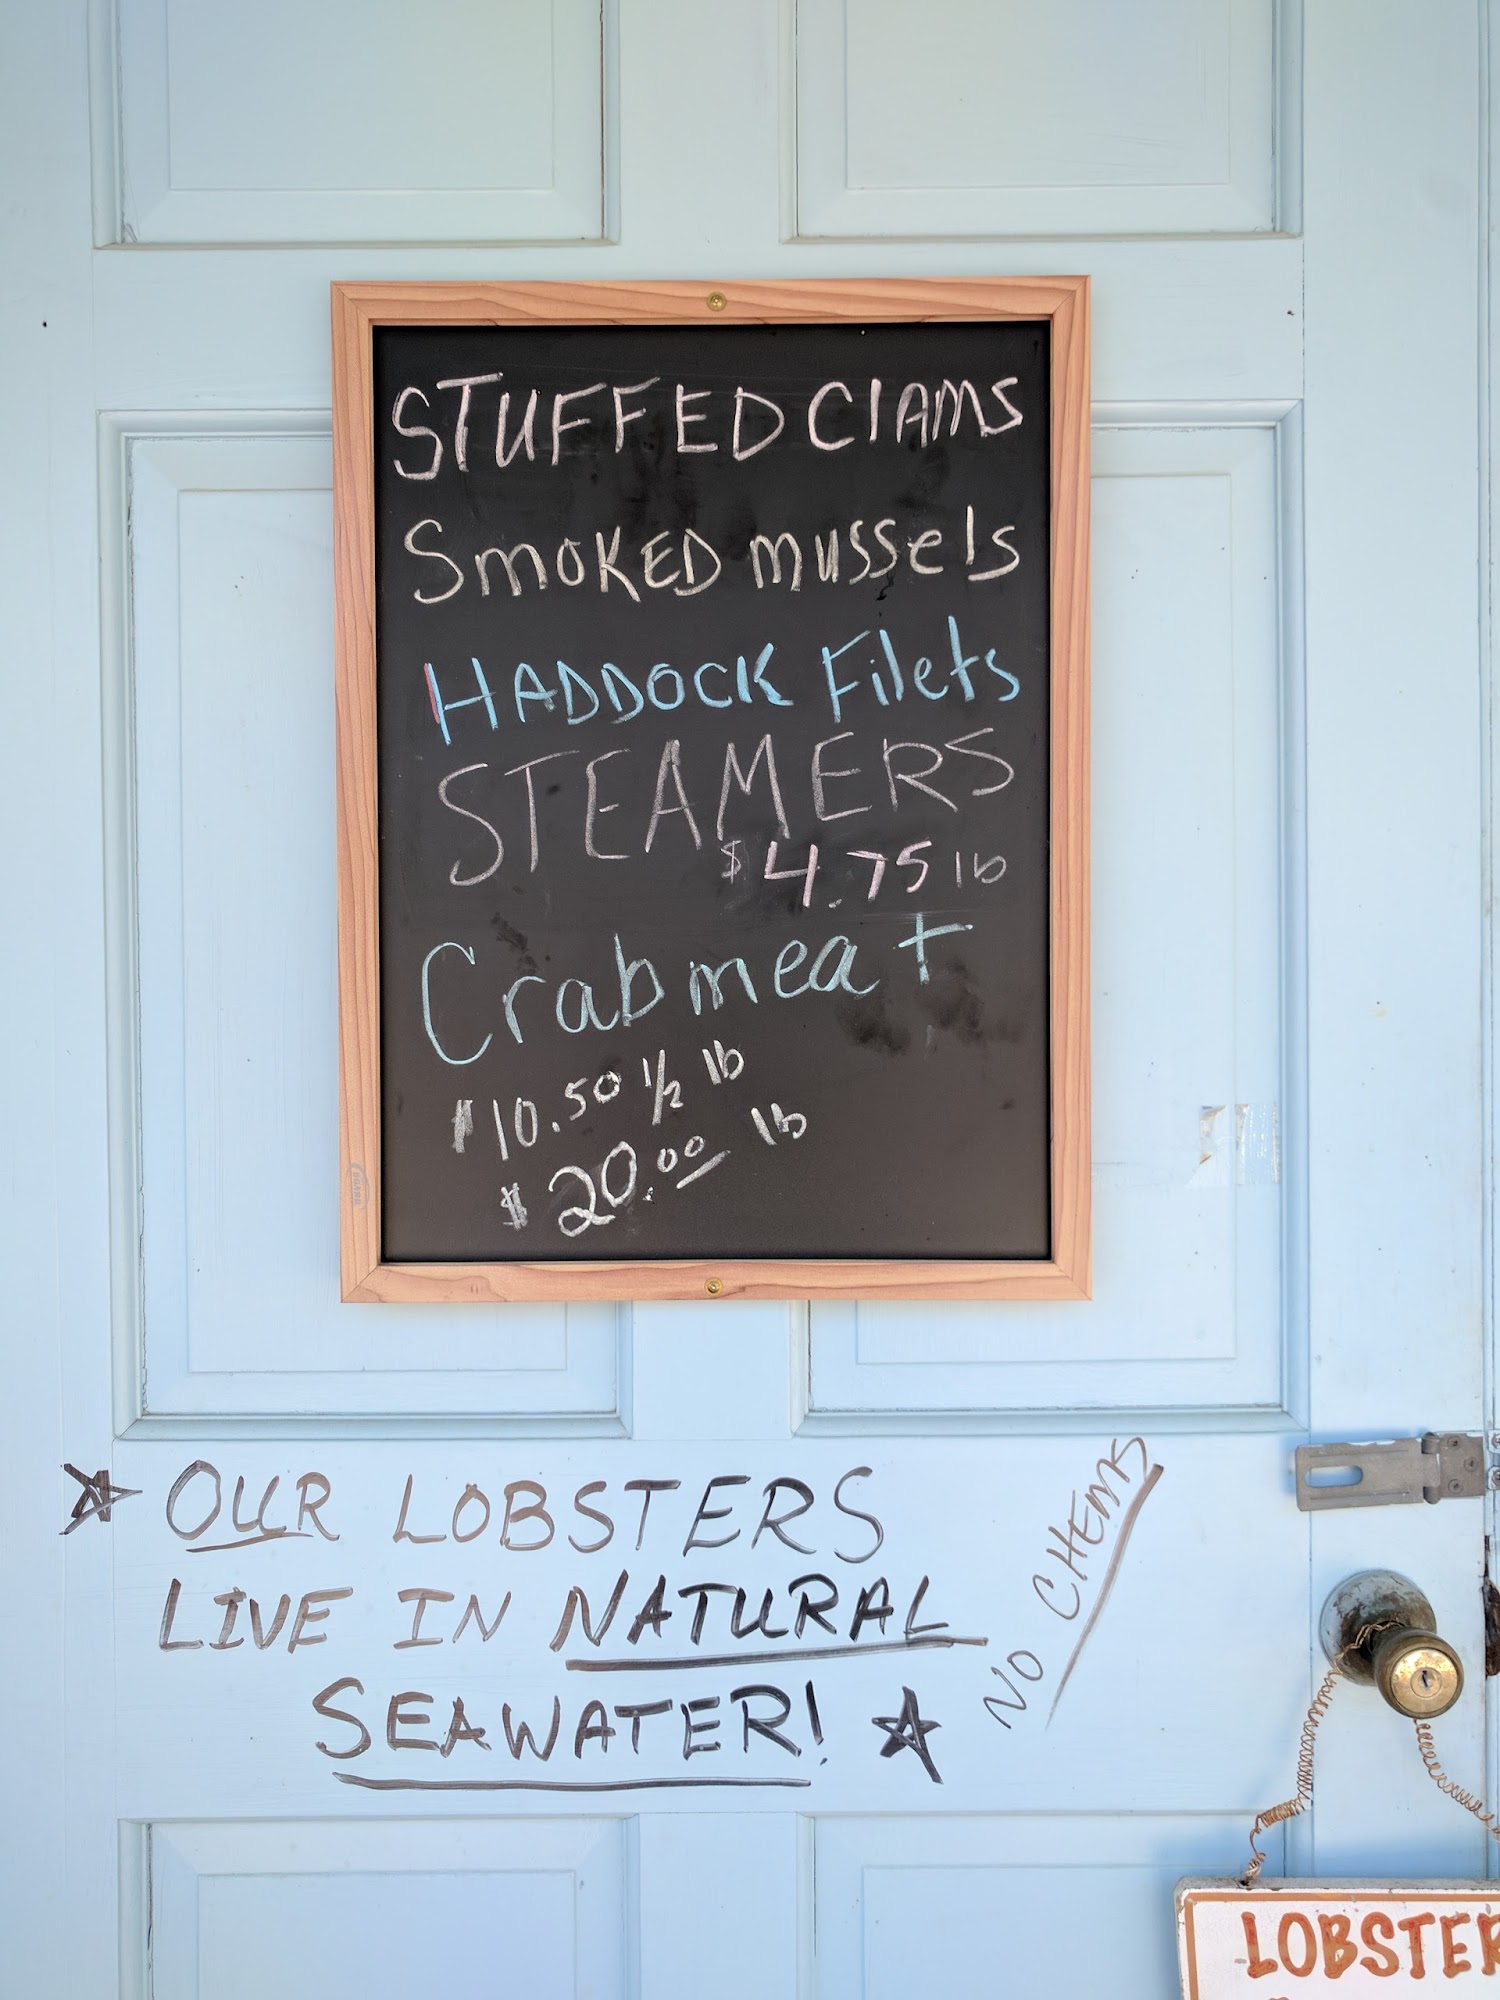 STUFFED ClAMS
SmOKED mussels
HADDOCK Filets
STEAMERS
$4.75 lb
Crabmeat
$10.50 1/2 lb
$20.00 lb
OUR LOBSTERS
LIVE IN NATURAL
SEAWATER!
NO CHEMS
LOBSTER